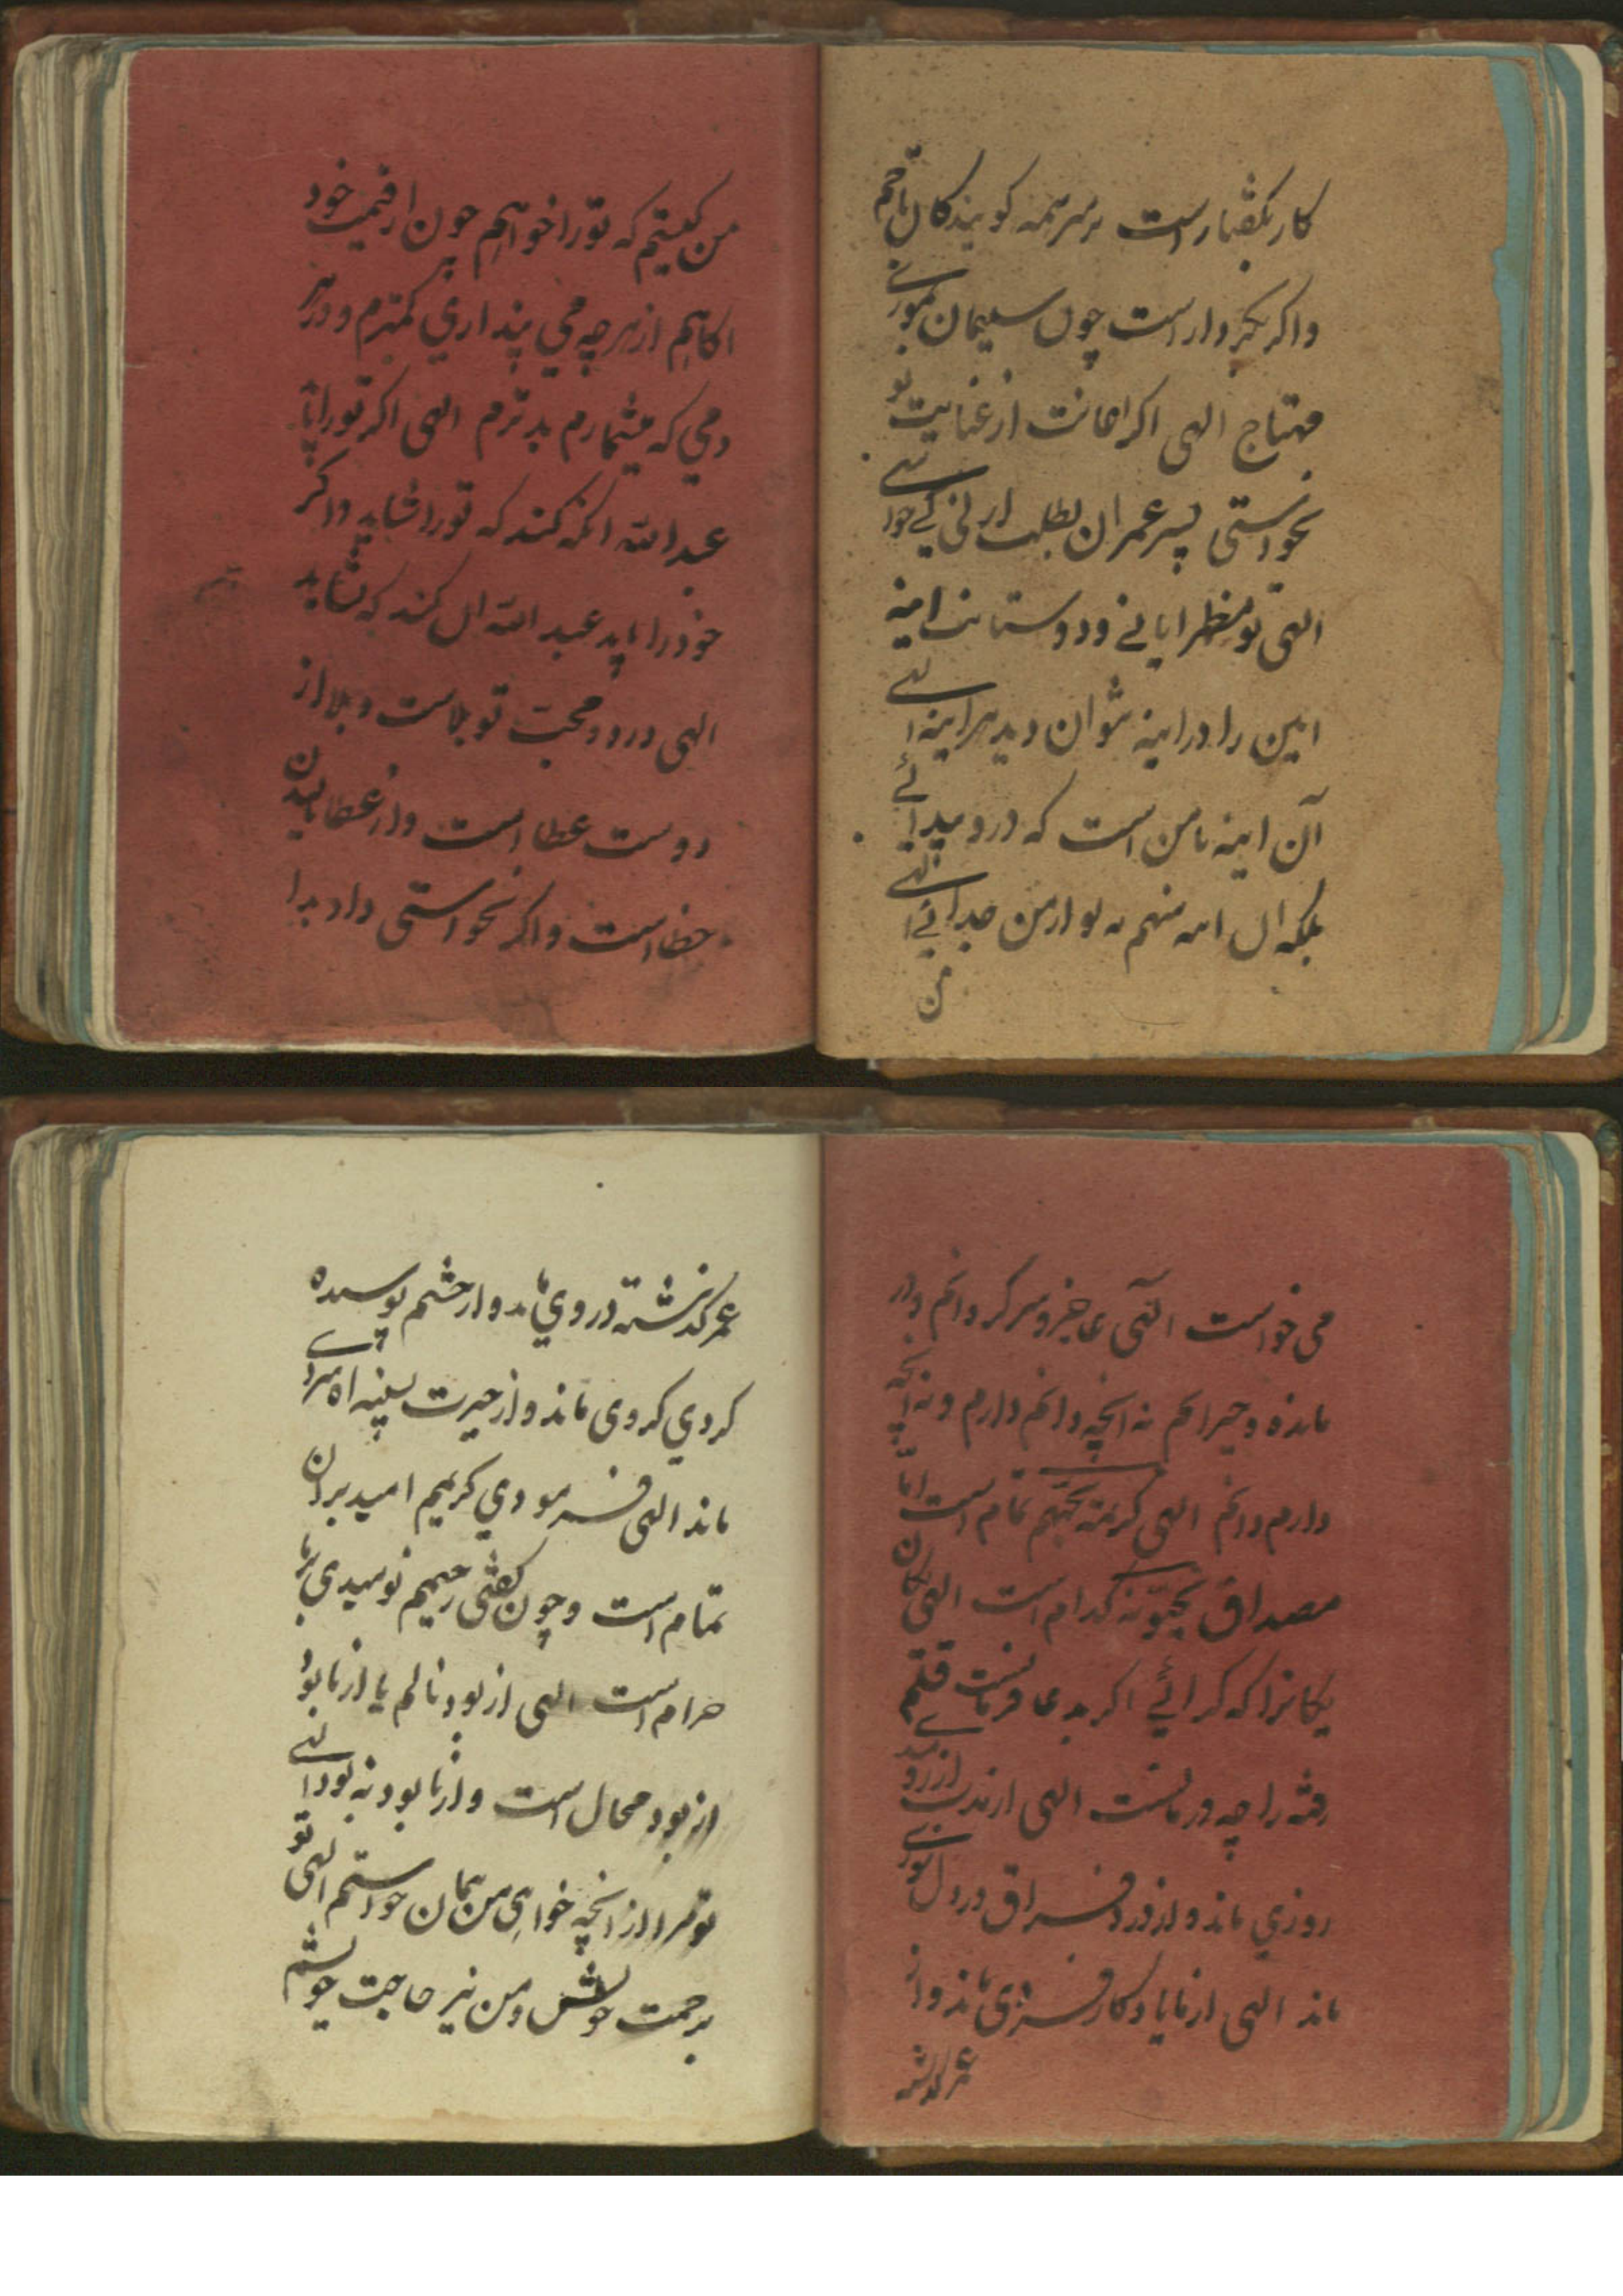 کار بگفتار است بر سر همه کویندکان تاجم
واکر بکردار است چون سلیمان بموری
محتاج الهی اکر اعانت از عنایت تو
نخواستی پسر عمران بطلب ارنی کی خواستی
الهی تو مظهر ایانی و دوستانت اینه
این را در اینه توان دید هر اینه الهی
آن اینه نا من است که درو پیدائی
بلکه ان اینه منم نه تو از من جدائی الهی
من
من کیستم که تورا خواهم چون از قیمت خود
اکاهم از هر چه می پنداری کمترم و در هر
دمی که میشمارم بدترم الهی اکر تورا باید
عبد الله انکه کند که تورا شاید واکر
خود را باید عبد الله ان کند که نشاید
الهی درد و محبت تو بلاست و بلا از
دوست عطا است و از عطا نالیدن
خطا است و اکر نخواستی داد بدا
می خواست الهی عاجز و سرکردانم و در
مانده و حیرانم نه انچه دانم دارم و نه انچه
دارم دانم الهی کریمه یحبهم تمام است اما
مصداق یحبونه کدام است الهی کان
یکانرا که کرائی اکر بدعا فرمانست قلم
رفته را چه درمانست الهی از نزد
روزی ماند و از درد فراق در دل
ماند الهی از ما یاد کار فرزی ماند و از
عمر کذشته
عمر کذشته در روی ماند و از چشم پوسیده
کردی کردی ماند و از حیرت بسینه اه سردی
ماند الهی فرمودی کریمم امید بر ان
تمام است و چون کفتی رحیمم نومیدی بر ما
حرام است الهی از بود نالم یا از نابود
از بود محال است و از نابود نه بود الهی
تو مرا از انچه خواهی من همان خواستم الهی تو
برحمت خویش و من نیز حاجت خویشم